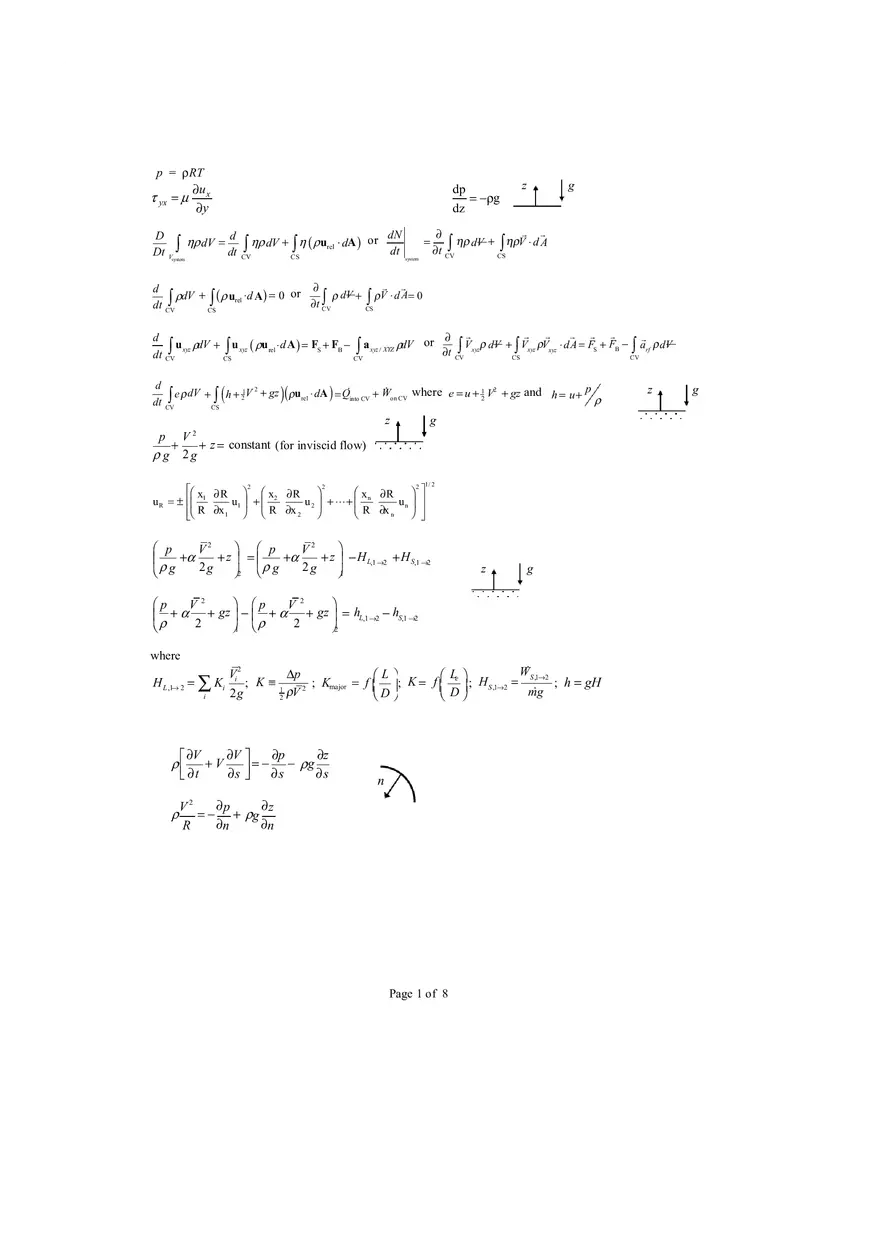 p = ρRT
τ_yx = μ ∂u_x/∂y    dp/dz = −ρg    z    g
D/Dt ∫_{V_system} ηρ dV = d/dt ∫_CV ηρ dV + ∫_CS η(ρu_rel · dA) or dN/dt|_system = ∂/∂t ∫_CV ηρ dV̶ + ∫_CS ηρV⃗ · dA⃗
d/dt ∫_CV ρdV + ∫_CS (ρu_rel · dA) = 0 or ∂/∂t ∫_CV ρ dV̶ + ∫_CS ρV⃗ · dA⃗ = 0
d/dt ∫_CV u_xyz ρdV + ∫_CS u_xyz (ρu_rel · dA) = F_S + F_B − ∫_CV a_xyz/XYZ ρdV or ∂/∂t ∫_CV V⃗_xyz ρ dV̶ + ∫_CS V⃗_xyz ρV⃗_xyz · dA⃗ = F⃗_S + F⃗_B − ∫_CV a⃗_rf ρ dV̶
d/dt ∫_CV eρ dV + ∫_CS (h + ½V² + gz)(ρu_rel · dA) = Q̇_into CV + Ẇ_on CV where e = u + ½V² + gz and h = u + p/ρ    z    g
p/ρg + V²/2g + z = constant (for inviscid flow)    z    g
u_R = ±[(x₁/R ∂R/∂x₁ u₁)² + (x₂/R ∂R/∂x₂ u₂)² + ⋯ + (x_n/R ∂R/∂x_n u_n)²]^{1/2}
(p/ρg + α V̅²/2g + z)_2 = (p/ρg + α V̅²/2g + z)_1 − H_{L,1→2} + H_{S,1→2}    z    g
(p/ρ + α V̅²/2 + gz)_1 − (p/ρ + α V̅²/2 + gz)_2 = h_{L,1→2} − h_{S,1→2}
where
H_{L,1→2} = ∑_i K_i V̅_i²/2g; K ≡ Δp/½ρV̅²; K_major = f(L/D); K = f(L_e/D); H_{S,1→2} = Ẇ_{S,1→2}/ṁg; h = gH
ρ[∂V/∂t + V ∂V/∂s] = −∂p/∂s − ρg ∂z/∂s
n
ρ V²/R = −∂p/∂n + ρg ∂z/∂n
Page 1 of 8